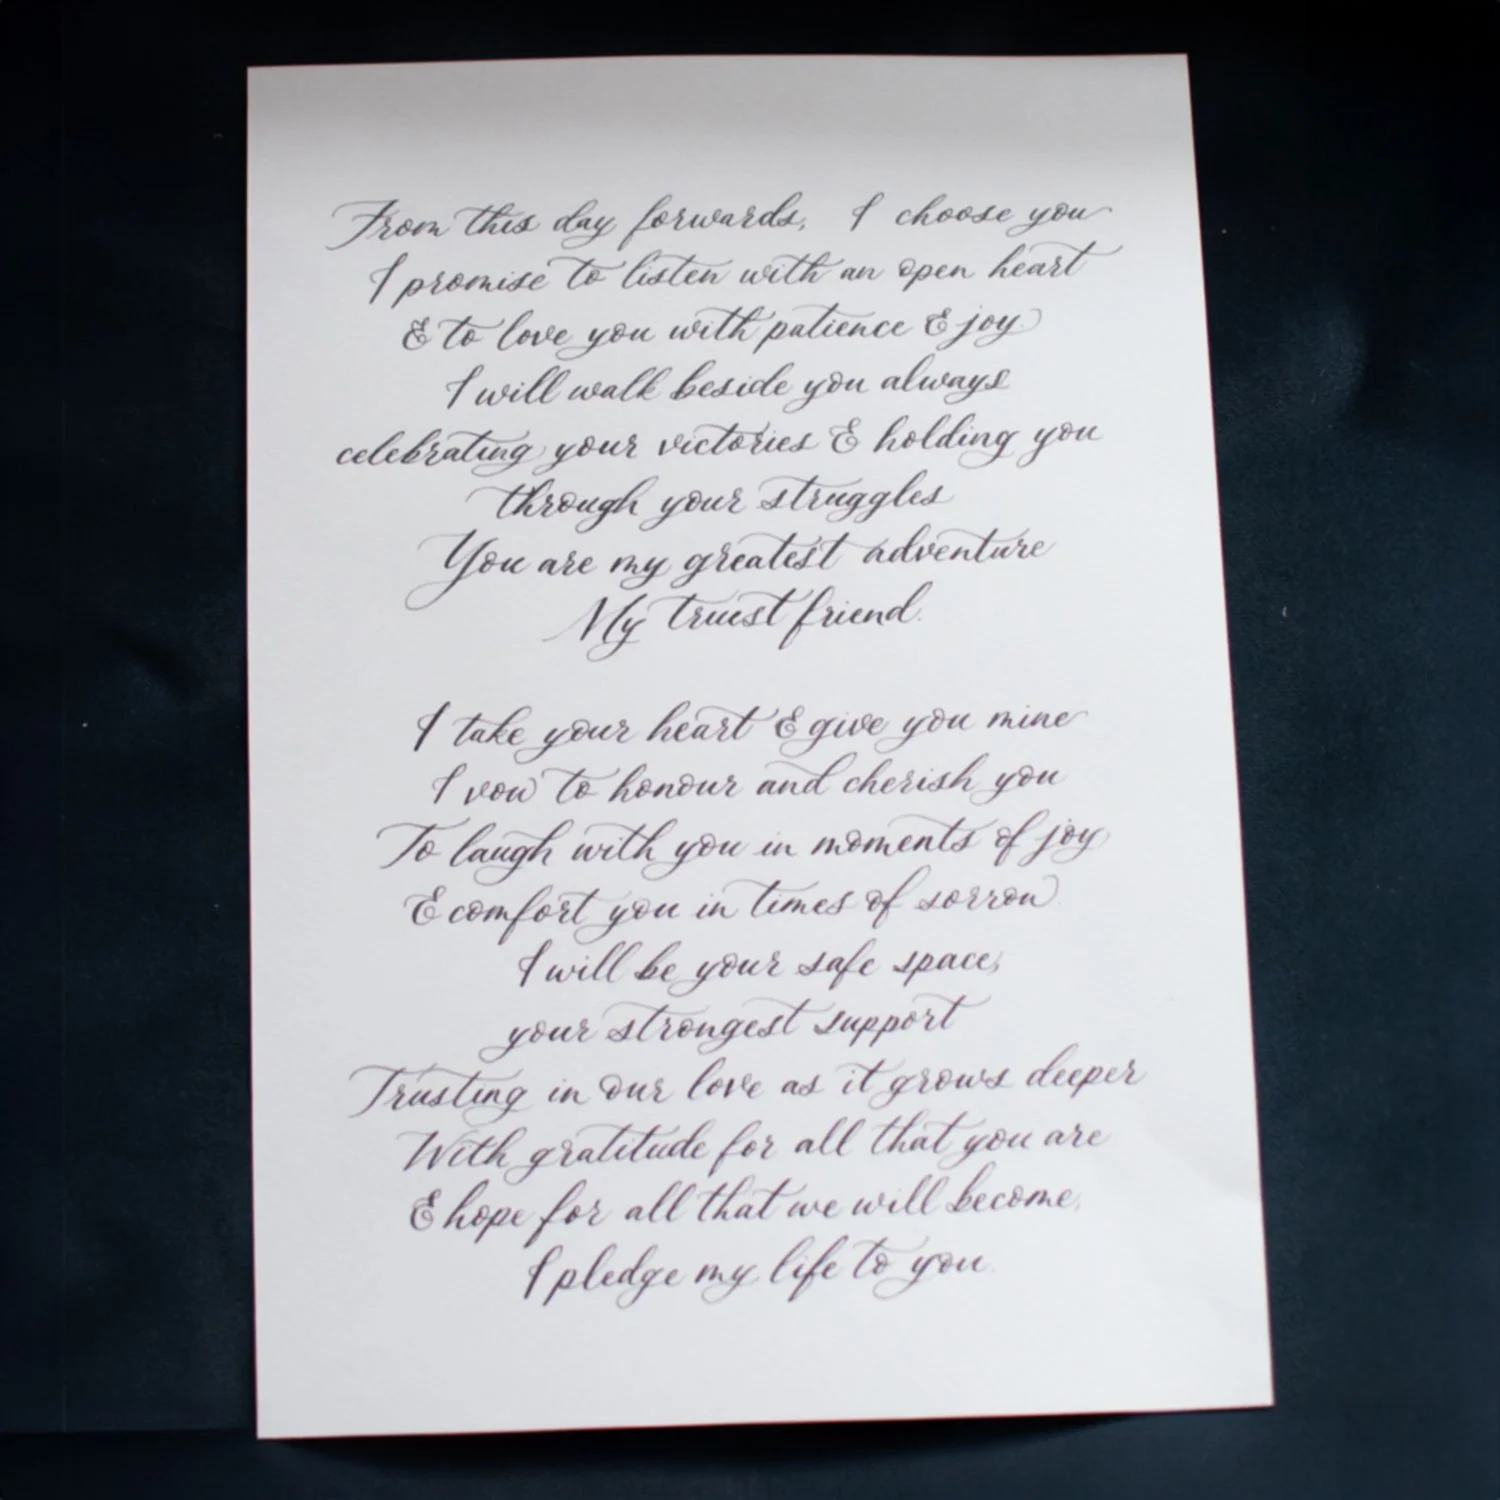 From this day forwards, I choose you
I promise to listen with an open heart
& to love you with patience & joy.
I will walk beside you always
celebrating your victories & holding you
through your struggles
You are my greatest adventure
My truest friend.
I take your heart & give you mine
I vow to honour and cherish you
To laugh with you in moments of joy
& comfort you in times of sorrow.
I will be your safe space,
your strongest support
Trusting in our love as it grows deeper
With gratitude for all that you are
& hope for all that we will become.
I pledge my life to you.